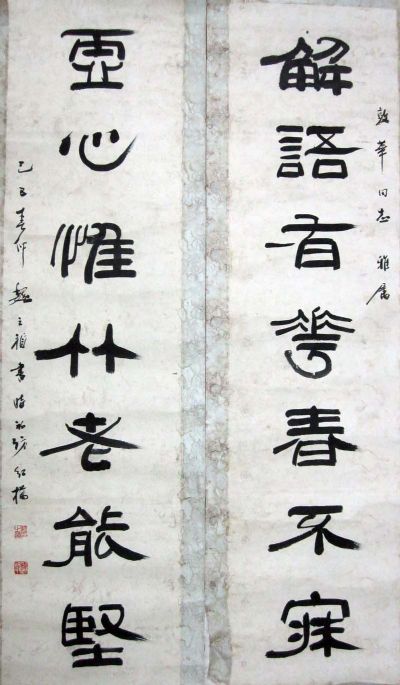 解語有花春不寐
敦華同志 雅屬
虛心惟竹老能堅
己巳春仲 魏之禎書時